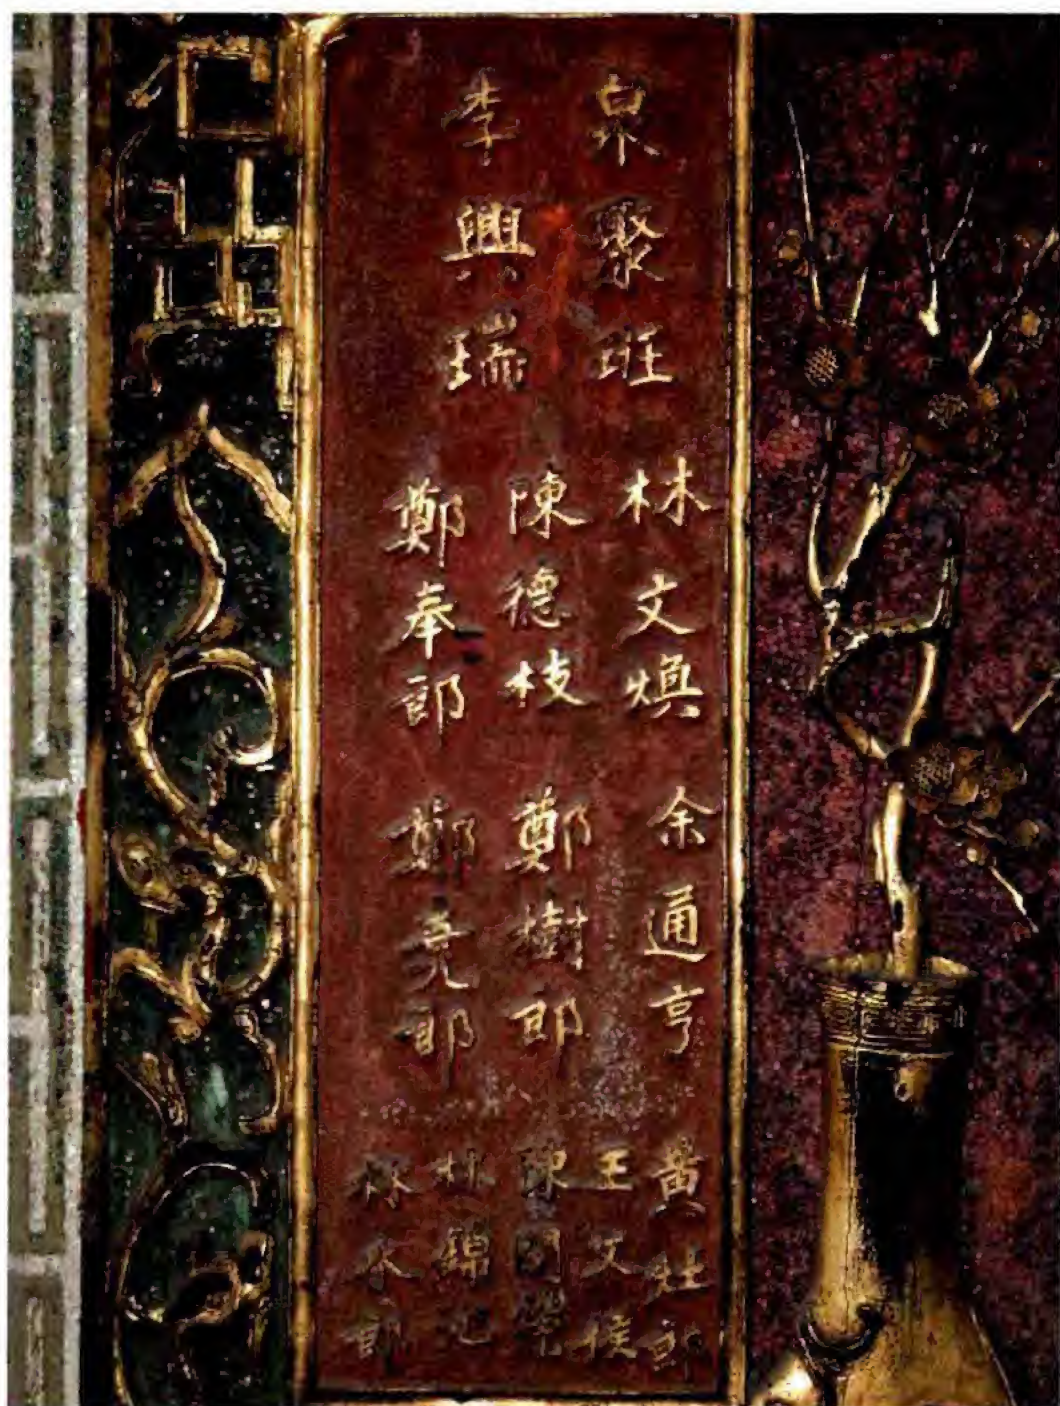 泉聚班
李興瑞
林文煥
陳德枝
鄭奉郎
余通亨
鄭樹郎
鄭亮郎
黃壯郎
王文俟
陳開
林錦
林永郎